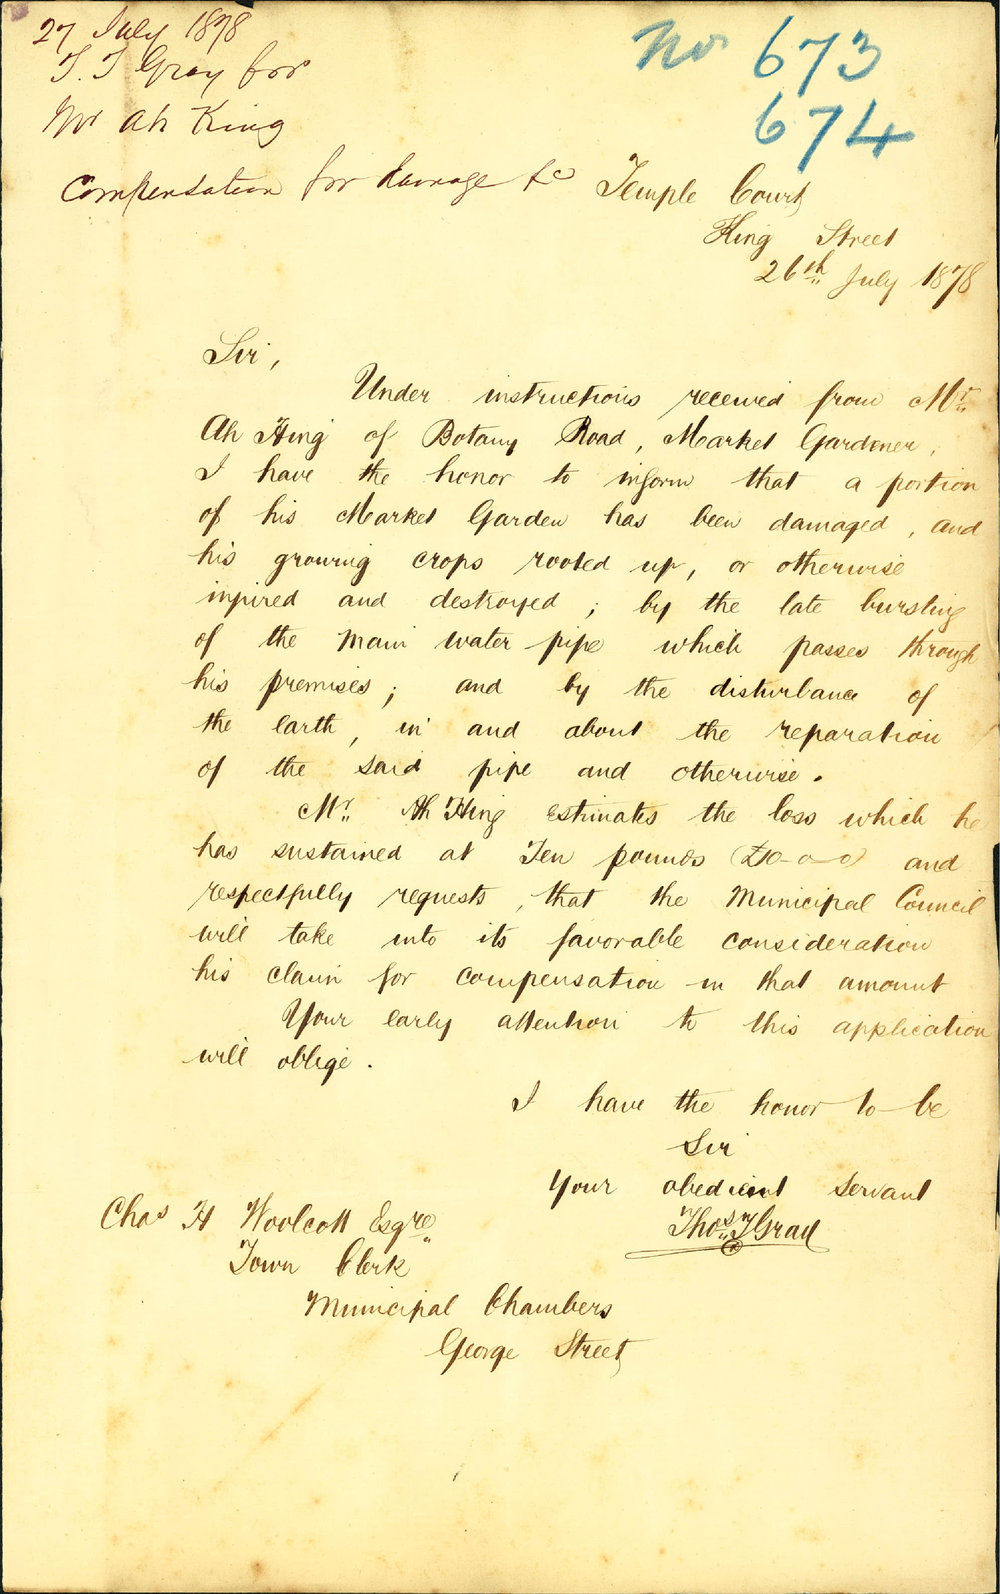 27 July 1878
T. T Gray for
Mr Ah King
Compensation for damage &c
No 673
674
Temple Court
King Street
26th July 1878
Sir,
Under instructions received from Mr.
Ah Hing of Botany Road, Market Gardener,
I have the honor to inform that a portion
of his Market Garden has been damaged, and
his growing crops rooted up, or otherwise
injured and destroyed; by the late bursting
of the main water pipe which passes through
his premises; and by the disturbance of
the earth, in and about the reparation
of the said pipe and otherwise.
Mr. Ah Hing estimates the loss which he
has sustained at Ten pounds (£10-0-0) and
respectfully requests, that the Municipal Council
will take into its favorable consideration
his claim for compensation in that amount
Your early attention to this application
will oblige.
I have the honor to be
Sir
Your obedient servant
Thos
Chas H Woolcott Esqre
Town Clerk
Municipal Chambers
George Street